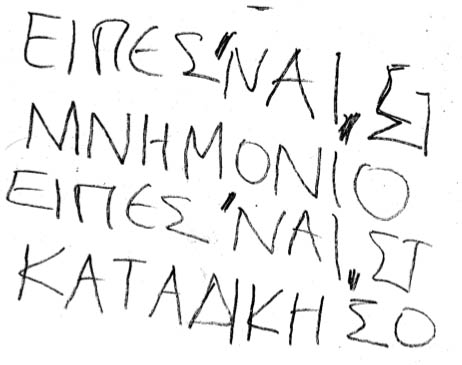 ΕΙΠΕΣ "ΝΑΙ" ΣΤ
ΜΝΗΜΟΝΙΟ
ΕΙΠΕΣ "ΝΑΙ" ΣΤ
ΚΑΤΑΔΙΚΗ ΣΟ